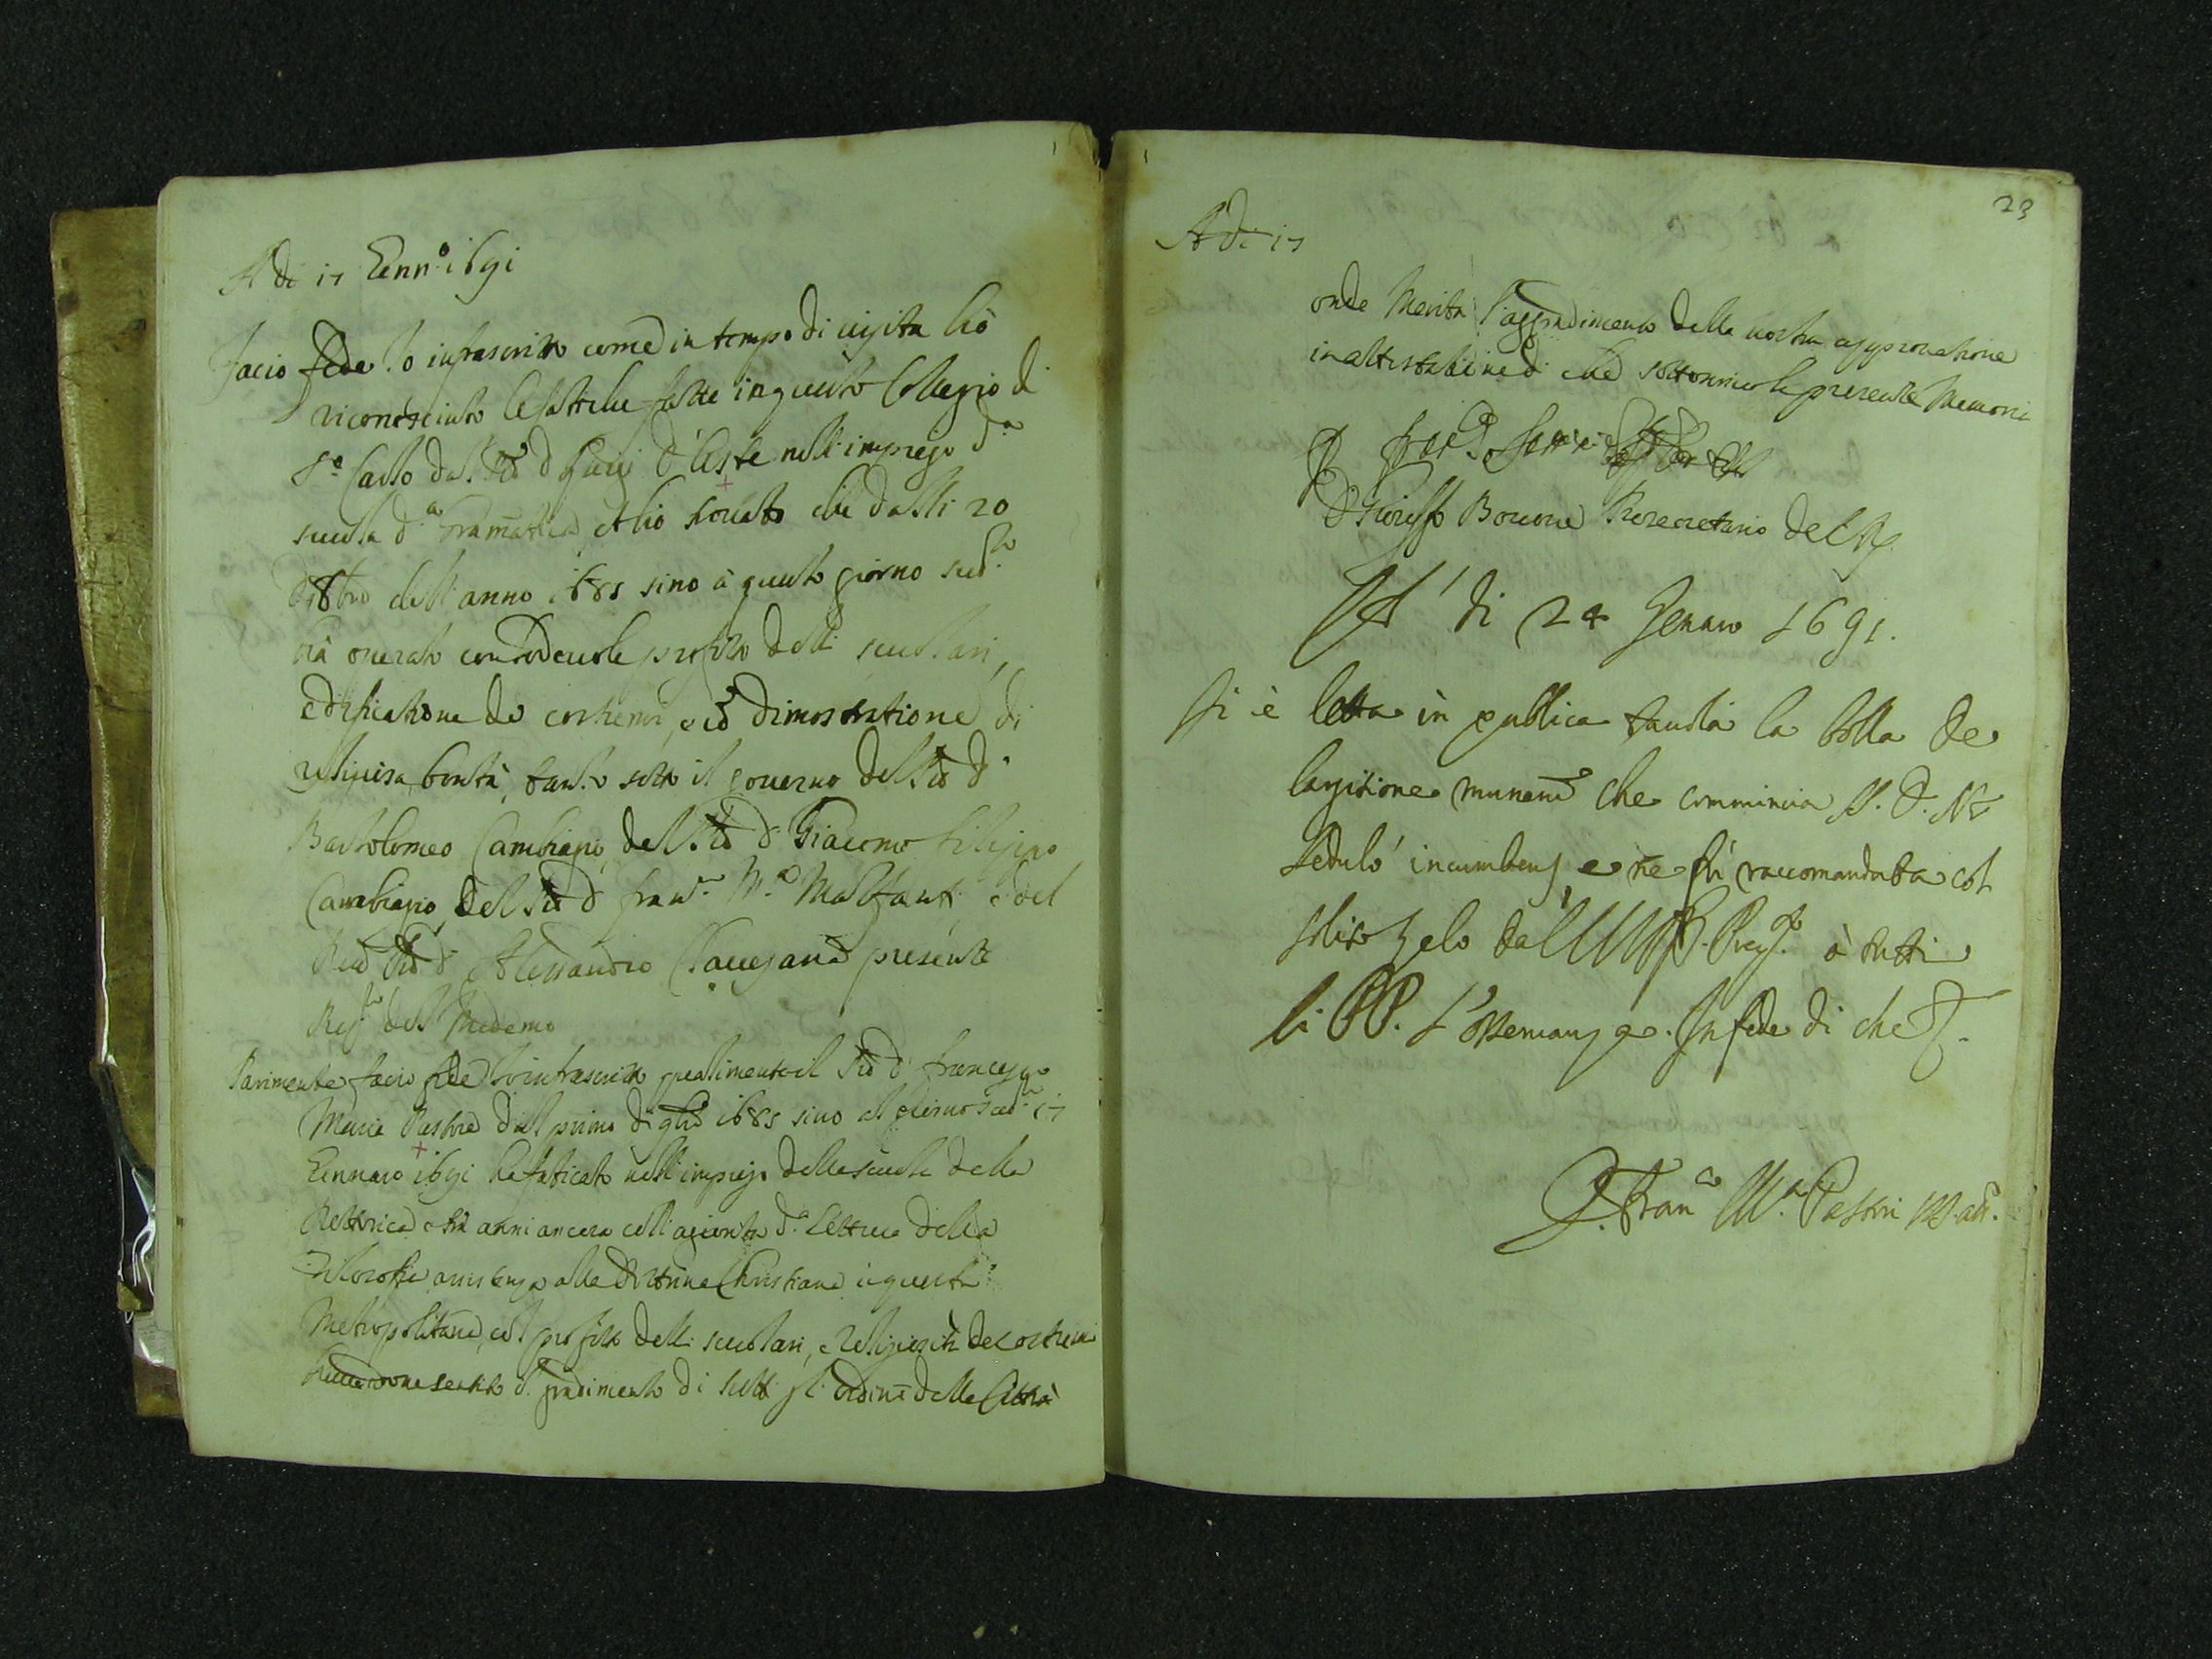 A di 17 Genn.o 1691
Facio fede Io infrascritto come in tempo di uisita hò
riconosciuto le fatiche fatte in questo Collegio di
S.o Carlo dal P.d d d'Este nell impiego d.a
scuola d.a Gramatica, et hò trouato che dalli 20
dell anno 1685 sino à questo giorno sud.to
hà operato con lodeuole profitto delli scuolari,
edificatione de costumi, e dimostratione di
religiosa bontà, tanto sotto il gouerno del P.d d
Bartolomeo Cambiagio, del P.d d Giacomo Filippo
Cambiagio, del P.d d Fran.co M.a Malfanti e del
P.d d Alessandro presente
Re.re del Medemo
Parimente facio fede Io infrascritto qualmente il P.d d Francesco
Maria Pastore dal primo di 1685 sino al giorno sud.to 17
Gennaro 1691 ha faticato nell impiego della scuola della
Rettorica e trè anni ancora coll agionta d.a Lettura della
Filosofia assistenza alla Dottrina Christiana i questa
Metropolitana, col profitto delli scuolari, e Religiosità de costumi
sentito il gradimento di tutti gli ordini della Città
23
A di 17
onde Merita l'aggradimento della nostra approuatione
in attestatione di che sottoscriuo la presente Memoria
D Gioseffo Bouone Prosecretario del R.
A' di 24 Gennaro 1691.
Si è letta in publica tauola la bolla de
largitione munerum che commincia S. D. N.
sedulò incumbens, e ne fù raccomandata col
solito zelo dal M. R. P. Prep.to à tutti
li PP. l'osseruanza. In fede di che &.
D. Fran.co M.a Pastori